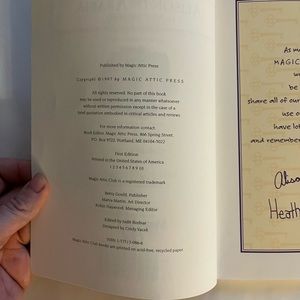 Published by Magic Attic Press
Copyright ©1997 by MAGIC ATTIC PRESS
All rights reserved. No part of this book
may be used or reproduced in any manner whatsoever
without written permission except in the case of a
brief quotation embodied in critical articles and reviews
For more information contact:
Book Editor, Magic Attic Press, 866 Spring Street
PO Box 9722, Portland, ME 04104-5022
First Edition
Printed in the United States of America
1 2 3 4 5 6 7 8 9 10
Magic Attic Club is a registered trademark
Betsy Gould, Publisher
Marva Martin, Art Director
Robin Haywood, Managing Editor
Edited by Judit Bodnar
Designed by Cindy Vacek
ISBN 1-57513-086-8
Magic Attic Club books are printed on acid-free, recycled paper.
As m
MAGIC
be
share all of our
use o
have l
and remembe
Aliso
Heath